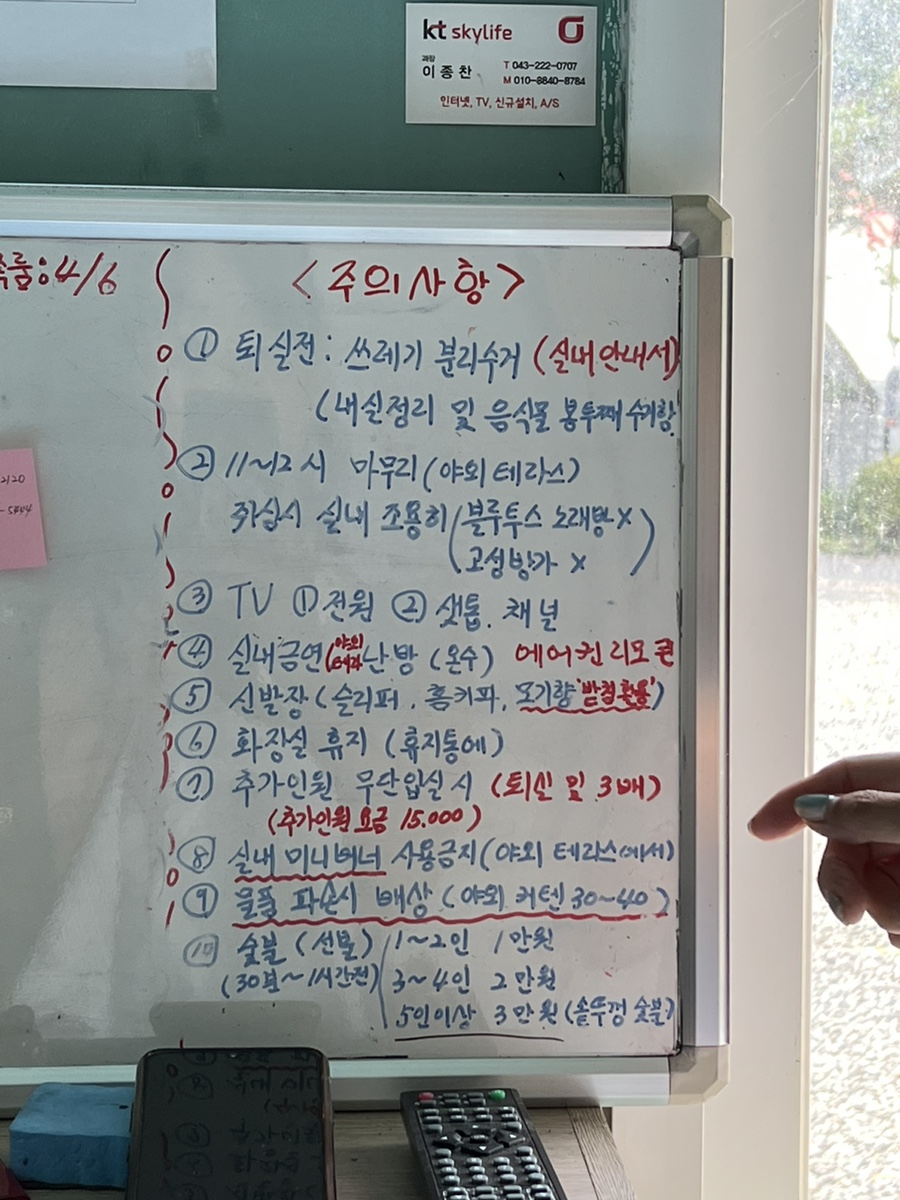 kt skylife
과장
이종찬
T 043-222-0707
M 010-8840-8784
인터넷, TV, 신규설치, A/S
룸:4/6
2120
-5444
<주의사항>
① 퇴실전: 쓰레기 분리수거 (실내안내서)
(내실정리 및 음식물 봉투째 수거함
② 11~12시 마무리(야외 테라스)
취침시 실내 조용히(블루투스 노래방 X
고성방가 X)
③ TV ①전원 ② 셋톱. 채널
④ 실내금연(야외 테라스 난방 (온수) 에어컨리모콘
⑤ 신발장(슬리퍼. 홈키파. 모기향'받침활용')
⑥ 화장실 휴지 (휴지통에)
⑦ 추가인원 무단입실시 (퇴실 및 3배)
(추가인원 요금 15.000)
⑧ 실내 미니버너 사용금지(야외 테라스에서)
⑨ 물품 파손시 배상 (야외 커텐 30~40)
⑩ 숯불 (선불) 1~2인 1만원
(30분~1시간전) 3~4인 2만원
5인이상 3만원 (솥뚜껑 숯불)